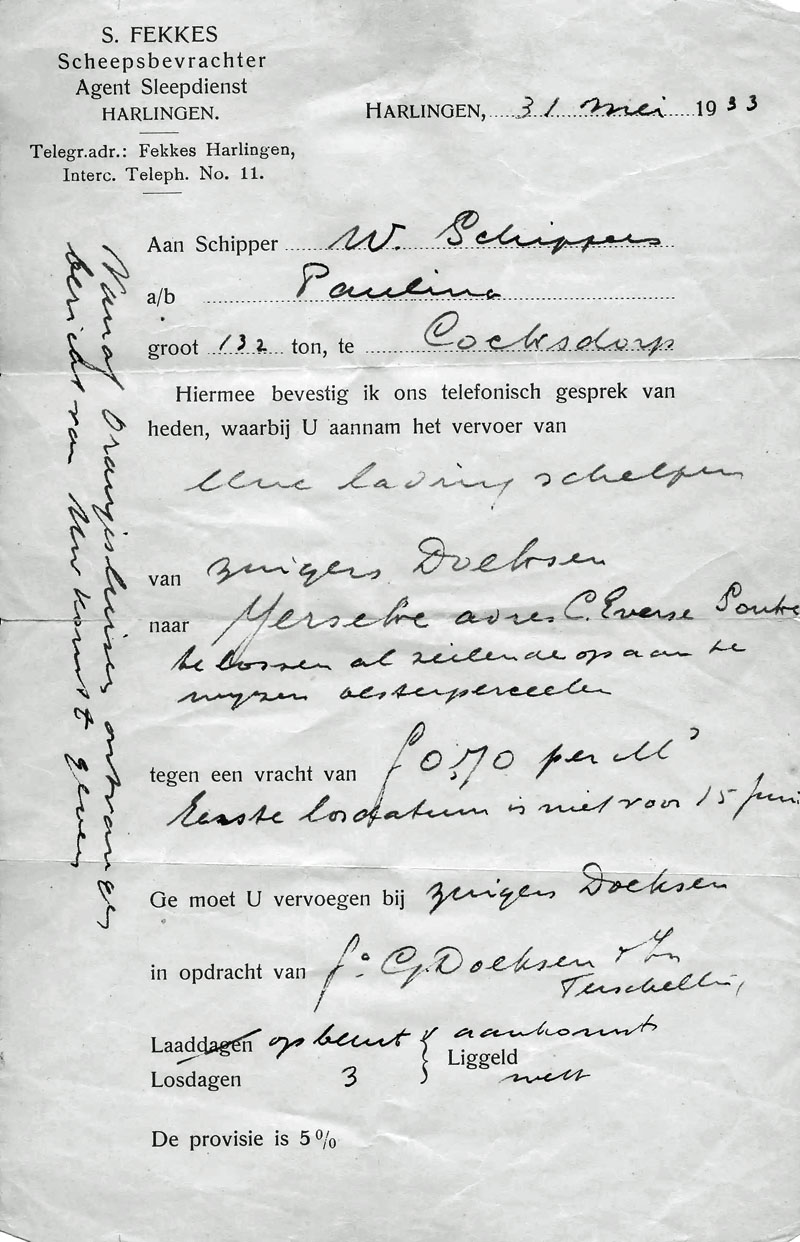 S. FEKKES
Scheepsbevrachter
Agent Sleepdienst
HARLINGEN.
Telegr.adr.: Fekkes Harlingen,
Interc. Teleph. No. 11.
HARLINGEN, 31 mei 1933
Aan Schipper W. Schippers
a/b Paulina
groot 132 ton, te Cocksdorp
Hiermee bevestig ik ons telefonisch gesprek van
heden, waarbij U aannam het vervoer van
Uwe lading schelpen
van zuigers Doeksen
naar Yerseke adres C. Everse
te lossen al zeilende op aan te
wyzen oesterperceelen
tegen een vracht van f 0,70 per M³
Eerste losdatum is niet voor 15 Juni
Ge moet U vervoegen bij zuigers Doeksen
in opdracht van G. Doeksen & Zn
Terschelling
Laaddagen op beurt aankomst
Liggeld wett
Losdagen 3
De provisie is 5%
Vanaf Oranjesluizen ontvanger
bericht van Uw komst geven